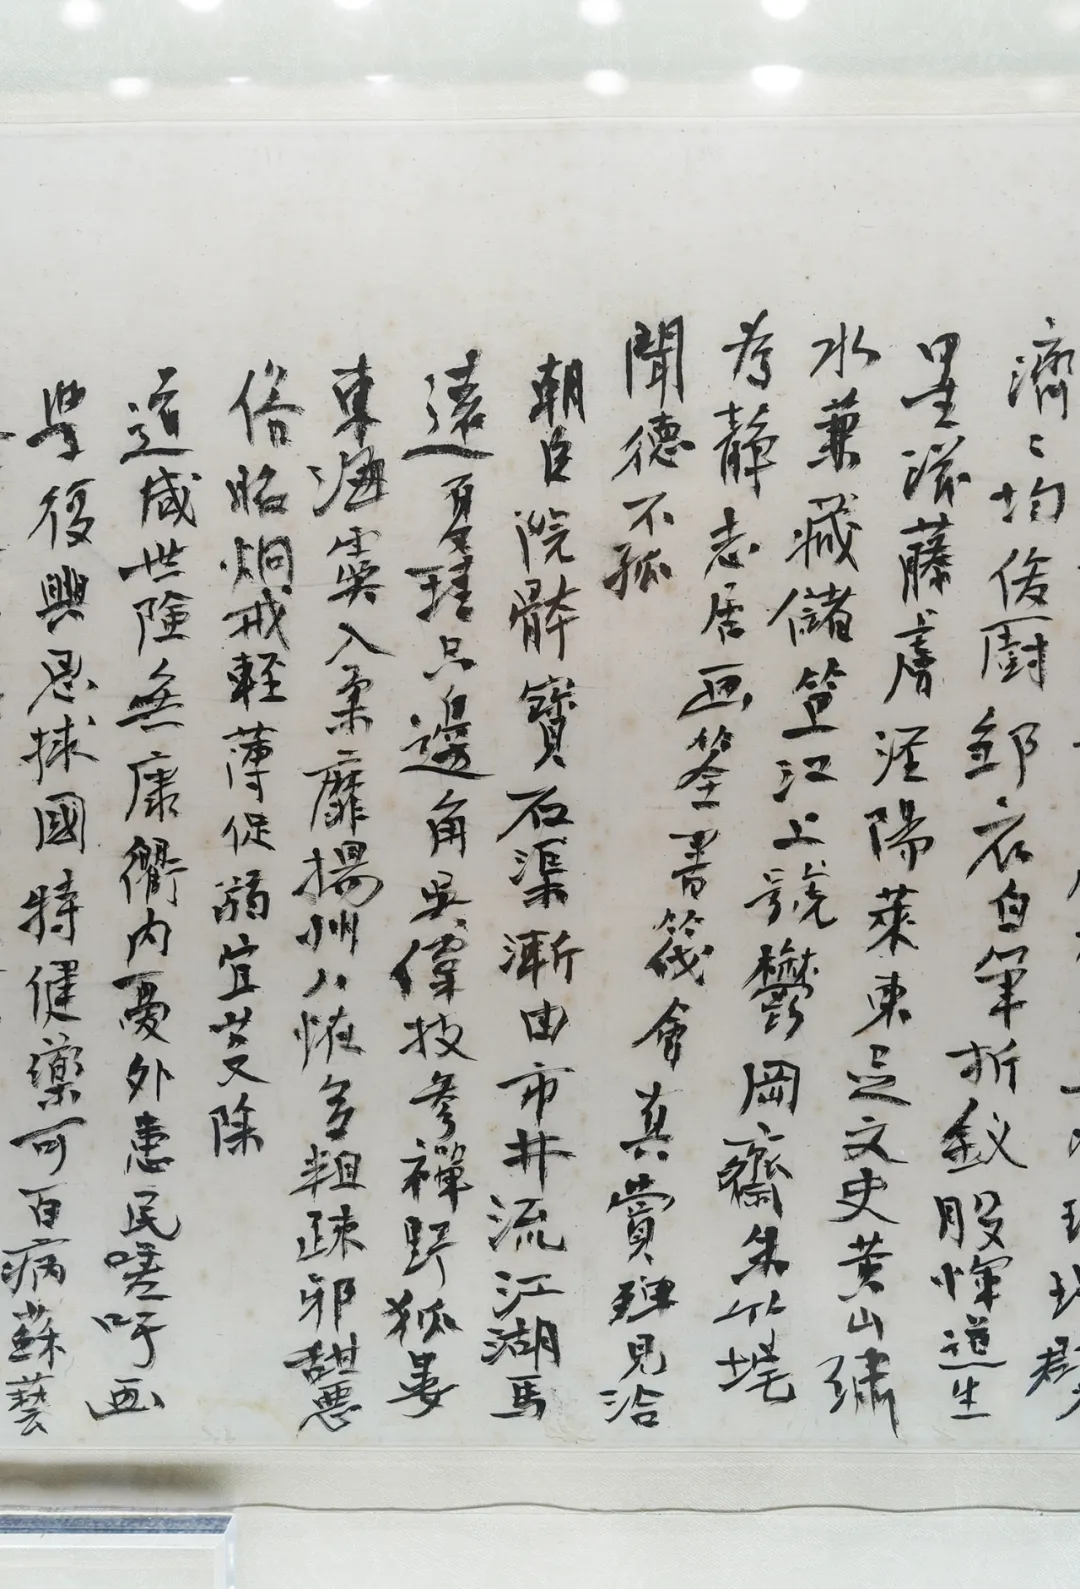 濟〻均俊厨鄒衣白筆折釵股惲道生
墨泼藤膚涇陽萊東足文史黃山繡
水兼藏儲笪江上號鬱岡齋朱竹垞
考靜志居画筌書筏會真賞殫見洽
聞德不孤
朝臣院體寶石渠漸由市井流江湖馬
遠夏珪只邊角吳偉技參禪野狐婁
東海虞入柔靡揚州八怪多粗疎邪甜惡
俗昭炯戒輕薄促弱宜芟除
道咸世險無康衢內憂外患民嗟吁画
學復興思救國特健藥可百病蘇藝